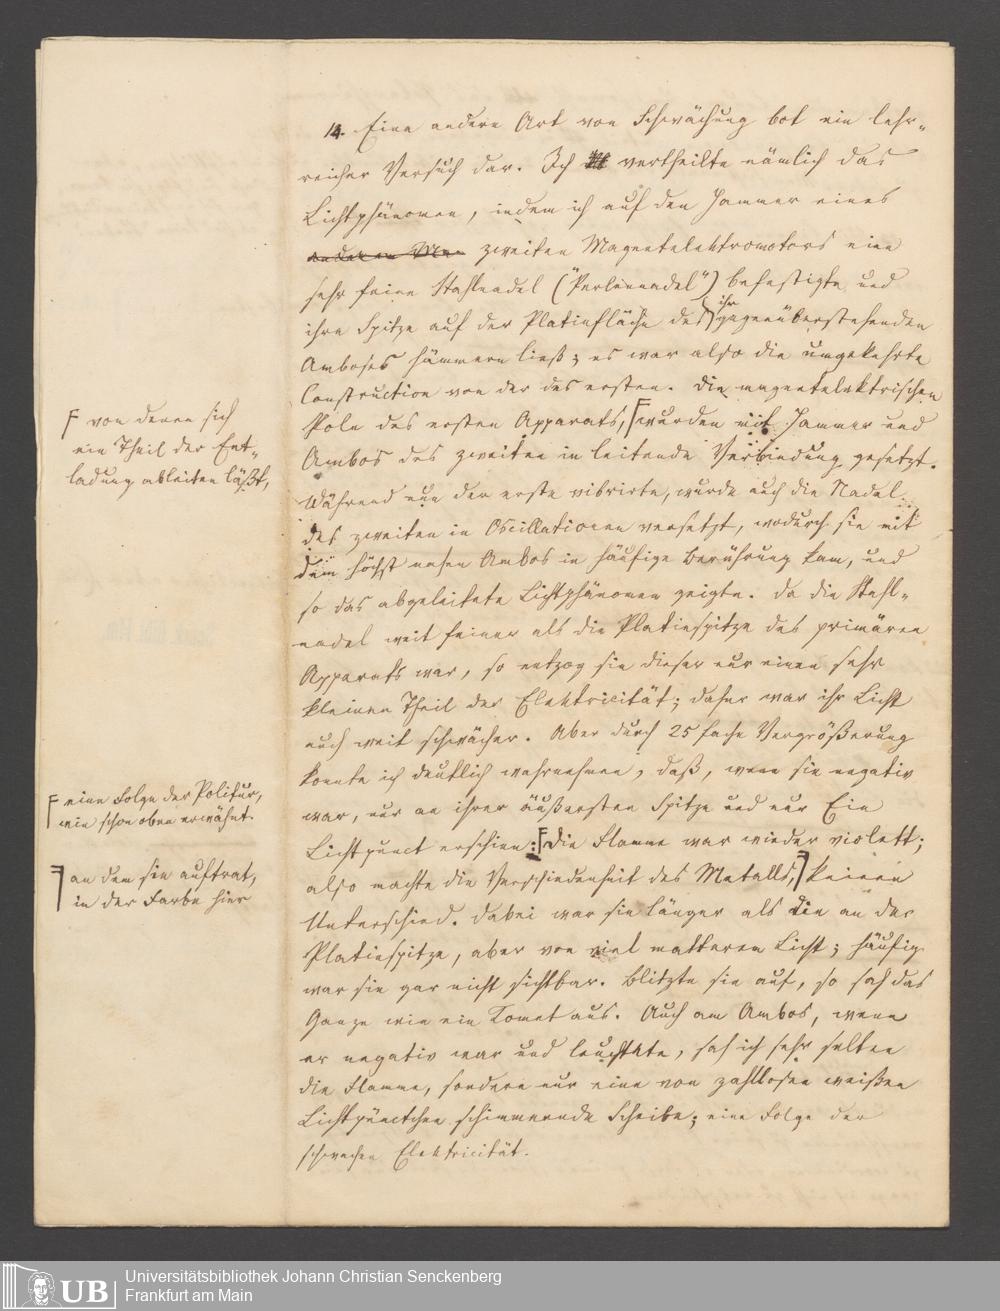 14. Eine andere Art von Schwächung bot ein lehr-
reicher Versuch dar. Ich vertheilte nämlich das
Lichtphänomen, indem ich auf den Hammer eines
anderen Mag zweiten Magnetelektromotors eine
sehr feine Stahlnadel ("Perlennadel") befestigte und
ihre Spitze auf der Platinfläche des ihr gegenüberstehenden
Amboses hämmern ließ; es war also die umgekehrte
Construction von der des ersten. Die magnetelektrischen
Pole des ersten Apparats, wurden mit Hammer und
Ambos des zweiten in leitende Verbindung gesetzt.
Während nun der erste vibrirte, wurde auch die Nadel
des zweiten in Oscillationen versetzt, wodurch sie mit
dem höchst nahen Ambos in häufige Berührung kam, und
so das abgeleitete Lichtphänomen zeigte. Da die Stahl-
nadel weit feiner als die Platinspitze des primären
Apparats war, so entzog sie dieser nur einen sehr
kleinen Theil der Elektricität; daher war ihr Licht
auch weit schwächer. Aber durch 25 fache Vergrößerung
konnte ich deutlich wahrnehmen, daß, wenn sie negativ
war, nur an ihrer äußersten Spitze und nur Ein
Lichtpunct erschien: Die Flamme war wieder violett;
also machte die Verschiedenheit des Metalls, keinen
Unterschied. Dabei war sie länger als die an der
Platinspitze, aber von viel matterem Licht; häufig
war sie gar nicht sichtbar. Blitzte sie auf, so sah das
Ganze wie ein Komet aus. Auch am Ambos, wenn
er negativ war und leuchtete, sah ich sehr selten
die Flamme, sondern nur eine von zahllosen weißen
Lichtpünctchen schimmernde Scheibe; eine Folge der
schwachen Elektricität.
von denen sich
ein Theil der Ent-
ladung ableiten läßt,
eine Folge der Politur,
wie schon oben erwähnt.
an dem sie auftrat,
in der Farbe hier
UB
Universitätsbibliothek Johann Christian Senckenberg
Frankfurt am Main